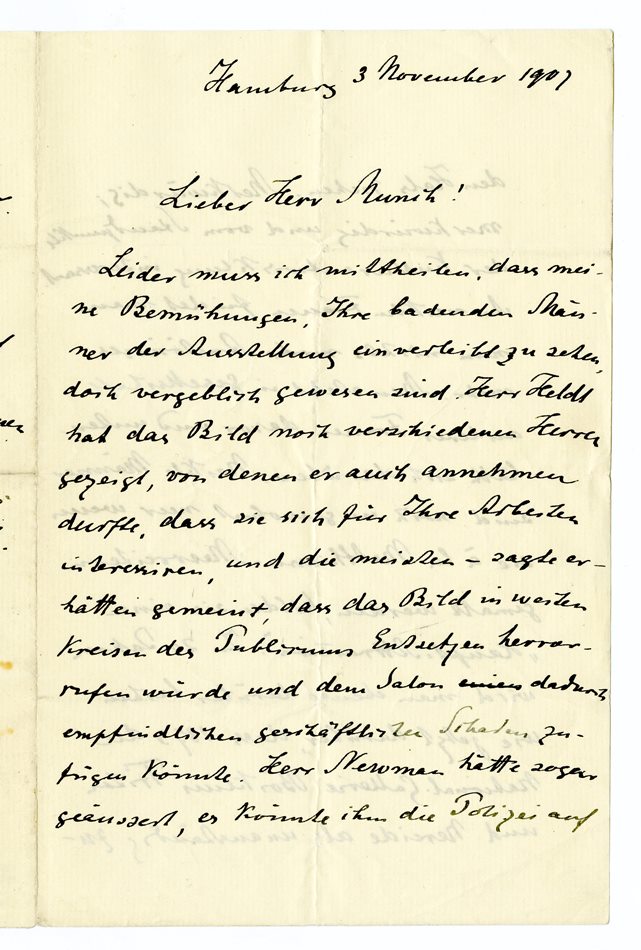 Hamburg 3 November 1907
Lieber Herr Munch!
Leider muss ich mittheilen, dass mei-
ne Bemühungen, Ihre badenden Män-
ner der Ausstellung einverleibt zu sehen,
doch vergeblich gewesen sind. Herr Heldt
hat das Bild noch verschiedenen Herren
gezeigt, von denen er auch annehmen
durfte, dass sie sich für Ihre Arbeiten
interessiren, und die meisten – sagte er –
hätten gemeint, dass das Bild in weiten
Kreisen des Publicums Entsetzen hervor-
rufen würde und dem Salon einen dadurch
empfindlichen geschäftlichen Schaden zu-
fügen könnte. Herr Newman hätte sogar
geäussert, es könnte ihm die Polizei auf